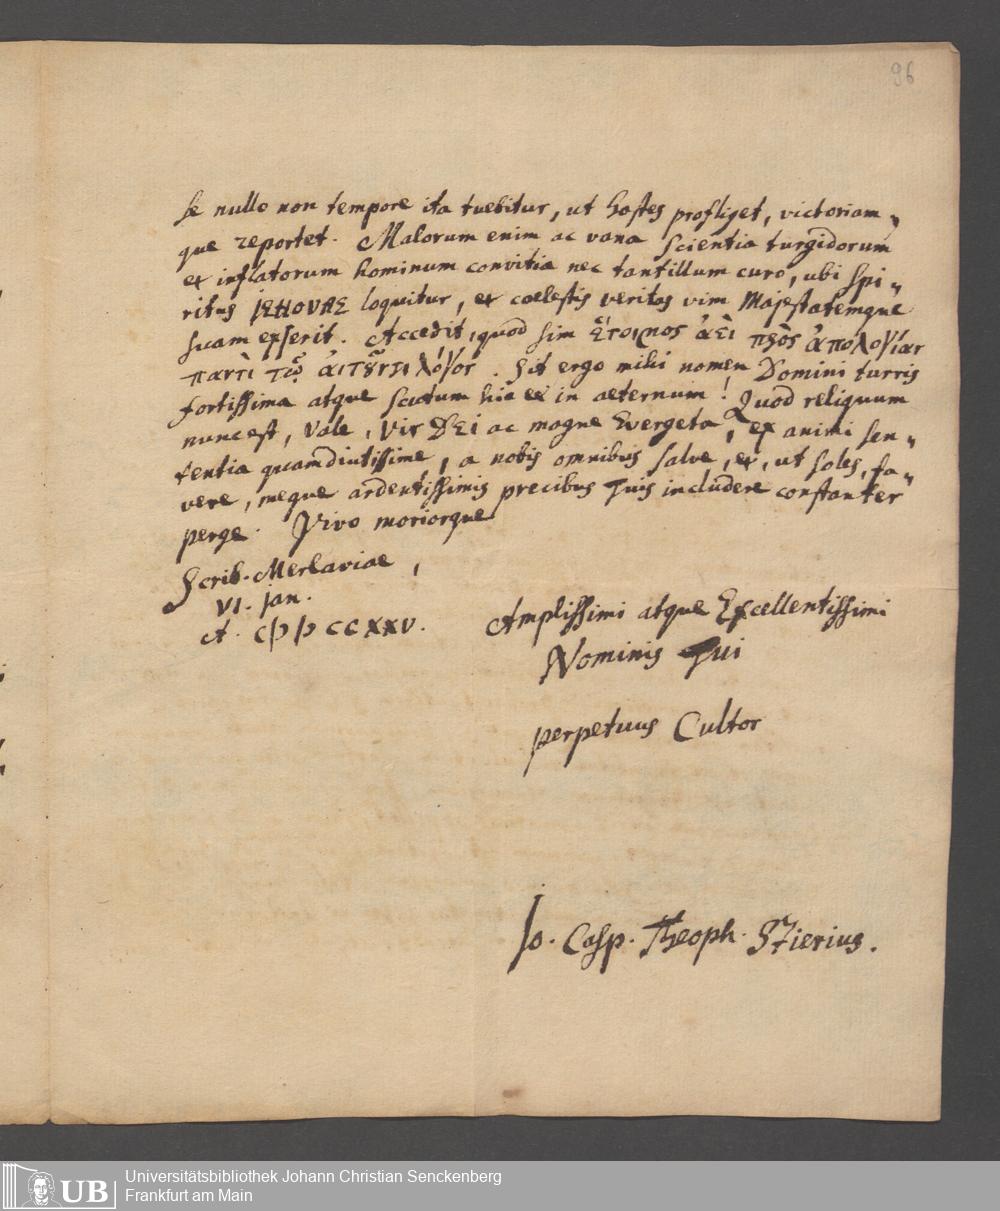 96
se nullo non tempore ita tuebitur, ut hostes profliget, victoriam„
que reportet. Malorum enim ac vana scientia turgidorum
et inflatorum hominum convitia nec tantillum curo, ubi Spi„
ritus JEHOVAE loquitur, et coelestis veritas vim Majestatemque
suam exserit. Accedit, quod sim ἕτοιμος ἀεὶ πρὸς ἀπολογίαν
παντὶ τῷ ἀιτοῦντι λόγον. Sit ergo mihi nomen Domini turris
fortissima atque scutum hic et in aeternum! Quod reliquum
nunc est, Vale, Vir DEI ac magne Evergeta, ex animi sen„
tentia quamdiutissime, a nobis omnibus salve, et, ut soles, fa„
vere, meque ardentissimis precibus Tuis includere constanter
perge. Vivo moriorque
Scrib. Merlaviae,
VI. Jan.
A. CIↃ IↃ CCXXV.
Amplissimi atque Excellentissimi
Nominis Tui
perpetuus Cultor
Jo. Casp. Theoph. Stierius.
UB
Universitätsbibliothek Johann Christian Senckenberg
Frankfurt am Main